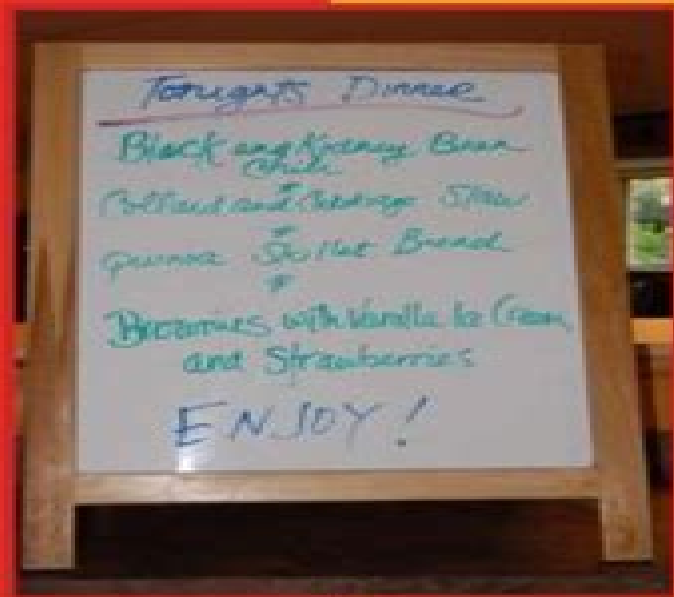 Tonight's Dinner
Black and Kidney Bean
Chili
Collard and Cabbage Slaw
Quinoa Skillet Bread
Brownies with Vanilla Ice Cream
and Strawberries
ENJOY!